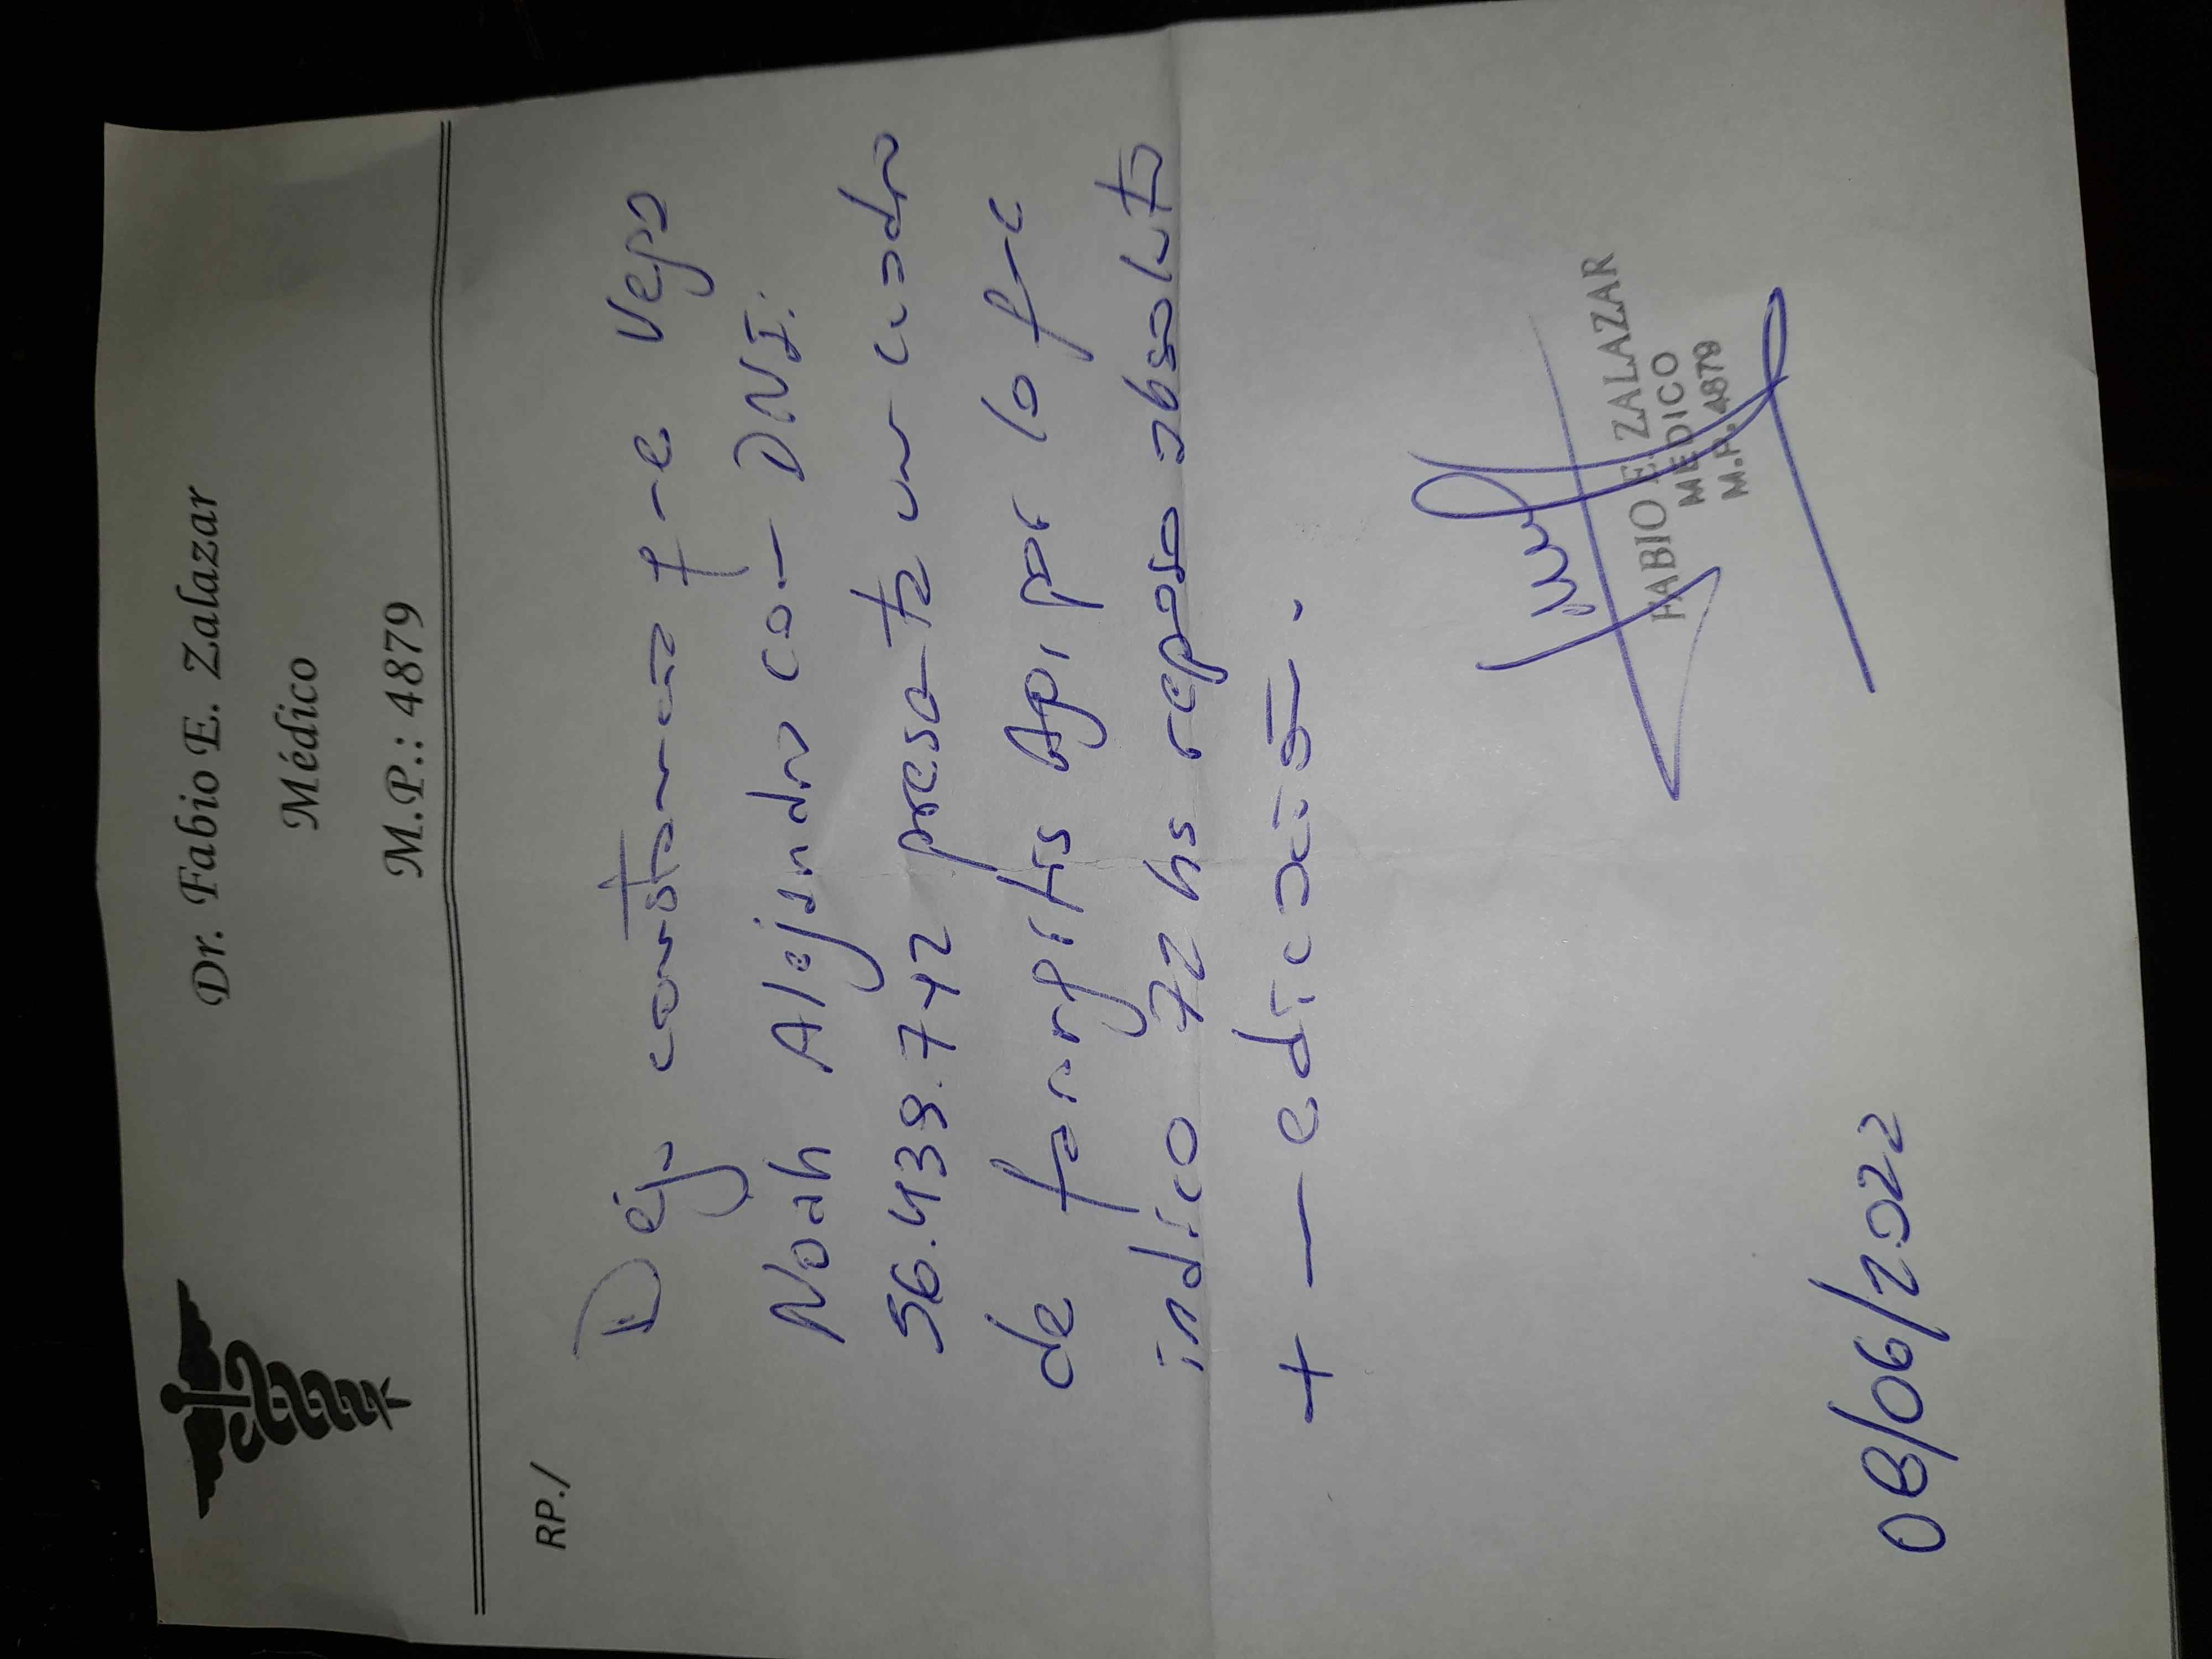 Dr. Fabio E. Zalazar
Médico
M.P.: 4879
RP./
Dejo constancia que Vega
Noah Alejandro con DNI:
56.439.742 presenta un cuadro
de faringitis Ag. por lo que
indico 72 hs reposo absoluto
+ medicación.
FABIO E. ZALAZAR
MEDICO
M.P. 4879
08/06/2022